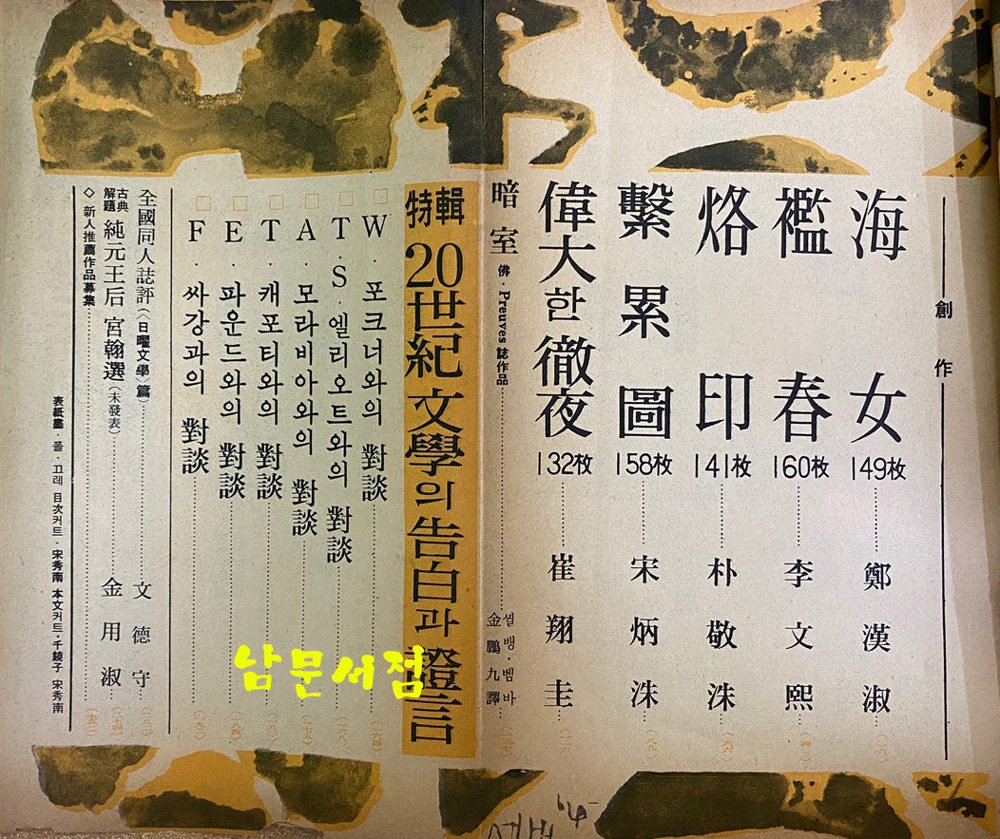 創作
海女 149枚 鄭漢淑
襤春 160枚 李文熙
烙印 141枚 朴敬洙
繫累圖 158枚 宋炳洙
偉大한 徹夜 132枚 崔翔圭
暗室 佛·Preuves 誌作品 썰뱅·벰바 金鵬九 譯
特輯 20世紀 文學의 告白과 證言
□ W·포크너와의 對談
□ T·S·엘리오트와의 對談
□ A·모라비아와의 對談
□ T·캐포티와의 對談
□ E·파운드와의 對談
□ F·싸강과의 對談
全國同人誌評(〈日曜文學〉篇) 文德守
古典解題 純元王后 宮翰選(未發表) 金用淑
◇ 新人推薦作品募集
表紙畵·폴·끄레 目次커트·宋秀南 本文커트·千鏡子 宋秀南
남문서점